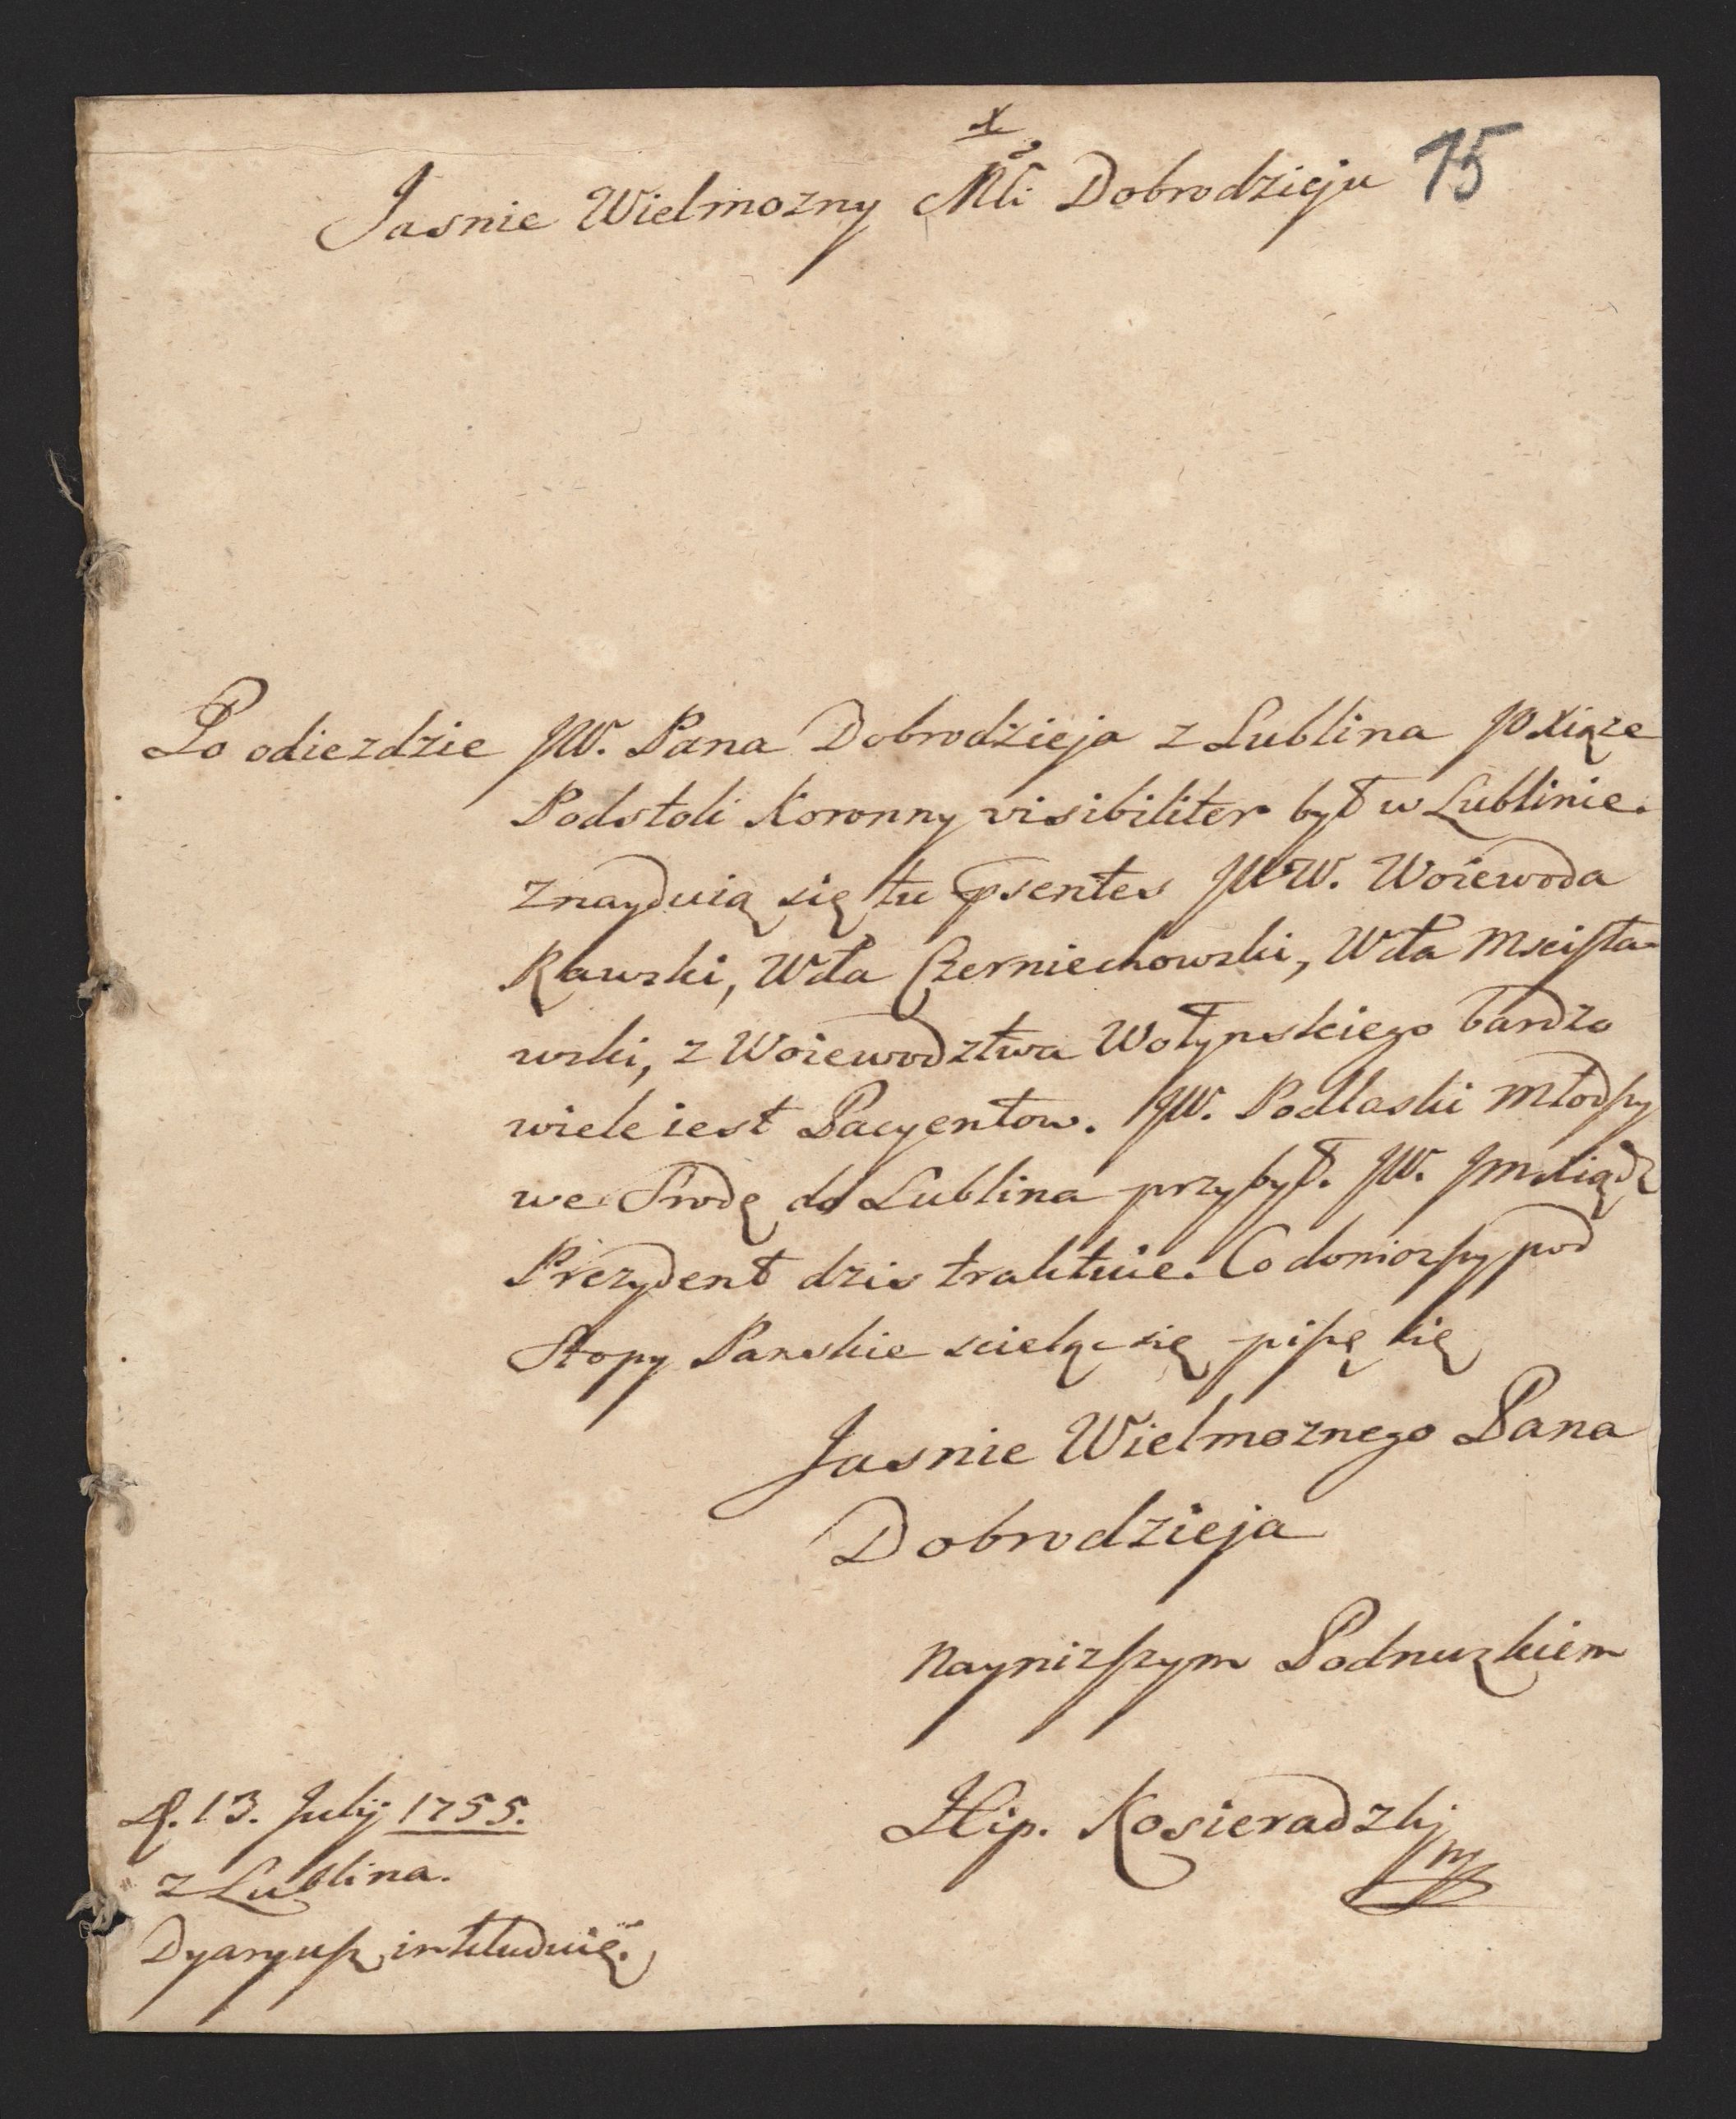 x
15
Jasnie Wielmozny Mći Dobrodzieju
Po odiezdzie JW. Pana Dobrodzieja z Lublina JO Xiąze
Podstoli Koronny visibiliter był w Lublinie.
Znayduią się tu psentes JWW. Woiewoda
Rawski, Wda Czerniechowski, Wda Mscisła-
wski, z Woiewodztwa Wołynskiego bardzo
wiele iest Pacyentow. JW. Podlaski Młodszy
we Srodę do Lublina przybył. JW. Jm Xiądz
Prezydent dzis traktuie. Co doniozszy pod
Stopy Panskie scieląc się piszę się
Jasnie Wielmoznego Pana
Dobrodzieja
Naynizszym Podnuzkiem
Hip. Kosieradzki
mp
D. 13. Julij 1755.
z Lublina.
Dyaryusz inkluduię.